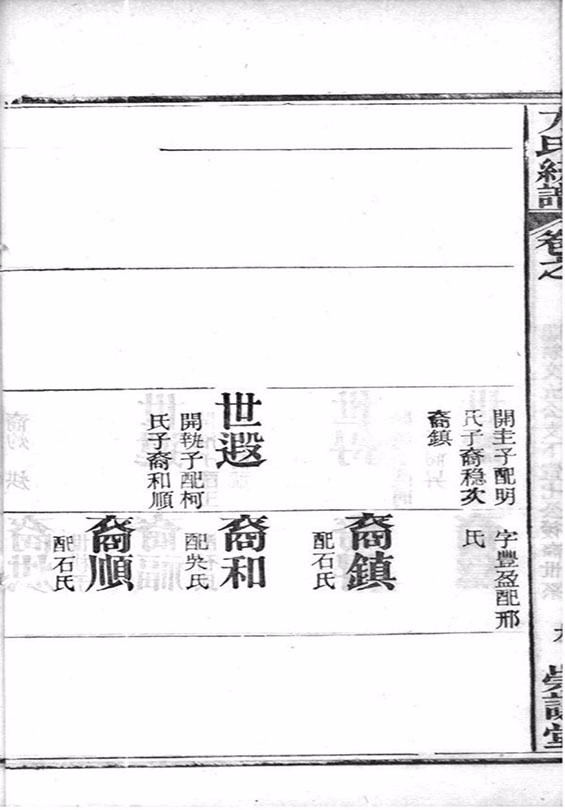 方氏統譜
卷之
崇讓堂
開圭子配明
氏子裔稳次
裔鎮
世遐
開
子配柯
氏子裔和順
字豐盈配邢
氏
裔鎮
配石氏
裔和
配吳氏
裔順
配石氏